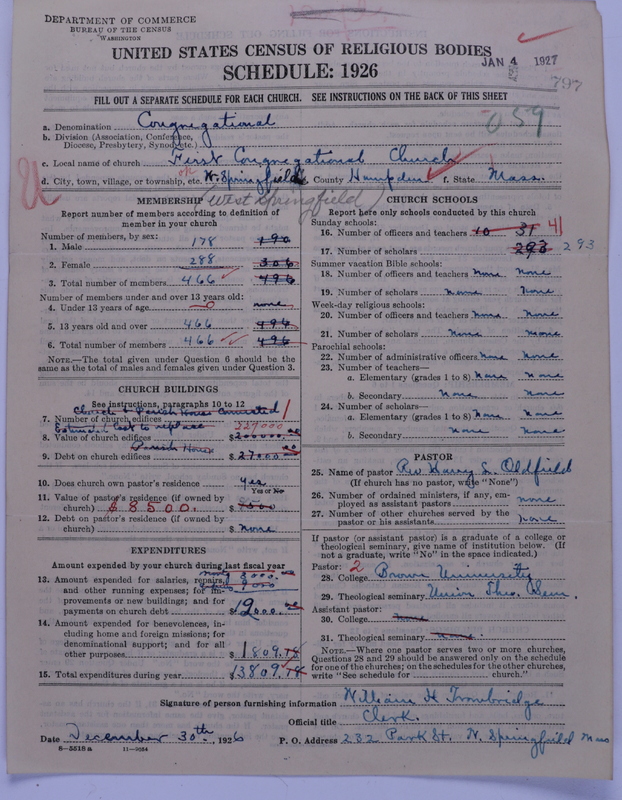 DEPARTMENT OF COMMERCE
BUREAU OF THE CENSUS
WASHINGTON
UNITED STATES CENSUS OF RELIGIOUS BODIES
JAN 4 1927
SCHEDULE: 1926
797
FILL OUT A SEPARATE SCHEDULE FOR EACH CHURCH. SEE INSTRUCTIONS ON THE BACK OF THIS SHEET
059
a. Denomination Congregational
b. Division (Association, Conference, Diocese, Presbytery, Synod, etc.)
c. Local name of church First Congregational Church
d. City, town, village, or township, etc. W. Springfield County Hampden f. State Mass.
(West Springfield)
MEMBERSHIP
Report number of members according to definition of member in your church
Number of members, by sex:
1. Male 178 190
2. Female 288 306
3. Total number of members 466 496
Number of members under and over 13 years old:
4. Under 13 years of age 0 none
5. 13 years old and over 466 496
6. Total number of members 466 496
NOTE.—The total given under Question 6 should be the same as the total of males and females given under Question 3.
CHURCH BUILDINGS
See instructions, paragraphs 10 to 12
Church & Parish House Connected
7. Number of church edifices 1
Estimated Cost to replace
8. Value of church edifices $200000.00
Parish House
9. Debt on church edifices $27000.00
10. Does church own pastor's residence yes
Yes or No
11. Value of pastor's residence (if owned by church) $8500. $8500
12. Debt on pastor's residence (if owned by church) $none
EXPENDITURES
Amount expended by your church during last fiscal year
13. Amount expended for salaries, repairs, and other running expenses; for improvements or new buildings; and for payments on church debt $12000.00
14. Amount expended for benevolences, including home and foreign missions; for denominational support; and for all other purposes $1809.78
15. Total expenditures during year $13809.78
CHURCH SCHOOLS
Report here only schools conducted by this church
Sunday schools:
16. Number of officers and teachers 10 31 41
17. Number of scholars 293 293
Summer vacation Bible schools:
18. Number of officers and teachers None None
19. Number of scholars None None
Week-day religious schools:
20. Number of officers and teachers None None
21. Number of scholars None None
Parochial schools:
22. Number of administrative officers None None
23. Number of teachers—
a. Elementary (grades 1 to 8) None None
b. Secondary None None
24. Number of scholars—
a. Elementary (grades 1 to 8) None None
b. Secondary None None
PASTOR
25. Name of pastor Rev Harry L. Oldfield
(If church has no pastor, write "None")
26. Number of ordained ministers, if any, employed as assistant pastors none
27. Number of other churches served by the pastor or his assistants none
If pastor (or assistant pastor) is a graduate of a college or theological seminary, give name of institution below. (If not a graduate, write "No" in the space indicated.)
Pastor: 2
28. College Brown University
29. Theological seminary Union Theo. Sem.
Assistant pastor:
30. College None
31. Theological seminary None
NOTE.—Where one pastor serves two or more churches, Questions 28 and 29 should be answered only on the schedule for one of the churches; on the schedules for the other churches, write "See schedule for church."
Signature of person furnishing information William H Trowbridge
Official title Clerk.
Date December 30th, 1926 P. O. Address 232 Park St. W. Springfield Mass
8—5518a 11—9054